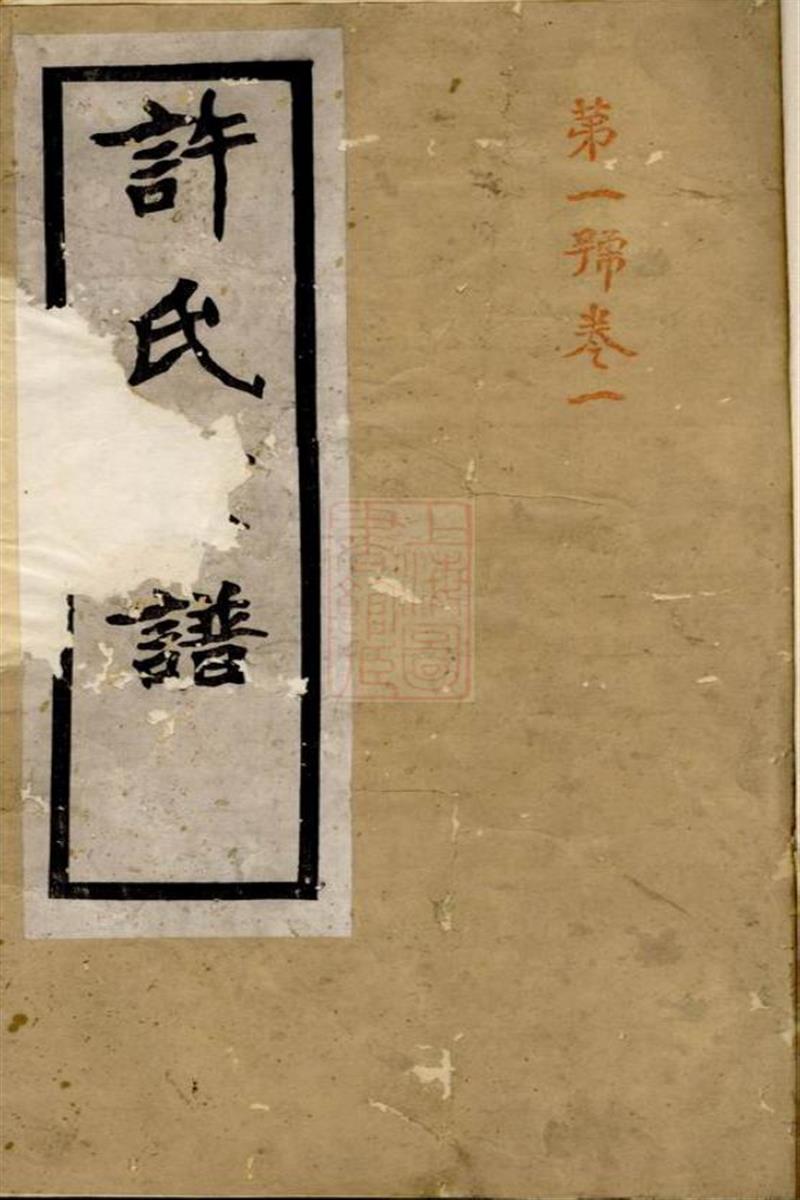 第一號卷一
許氏
譜
上海圖
書館臧